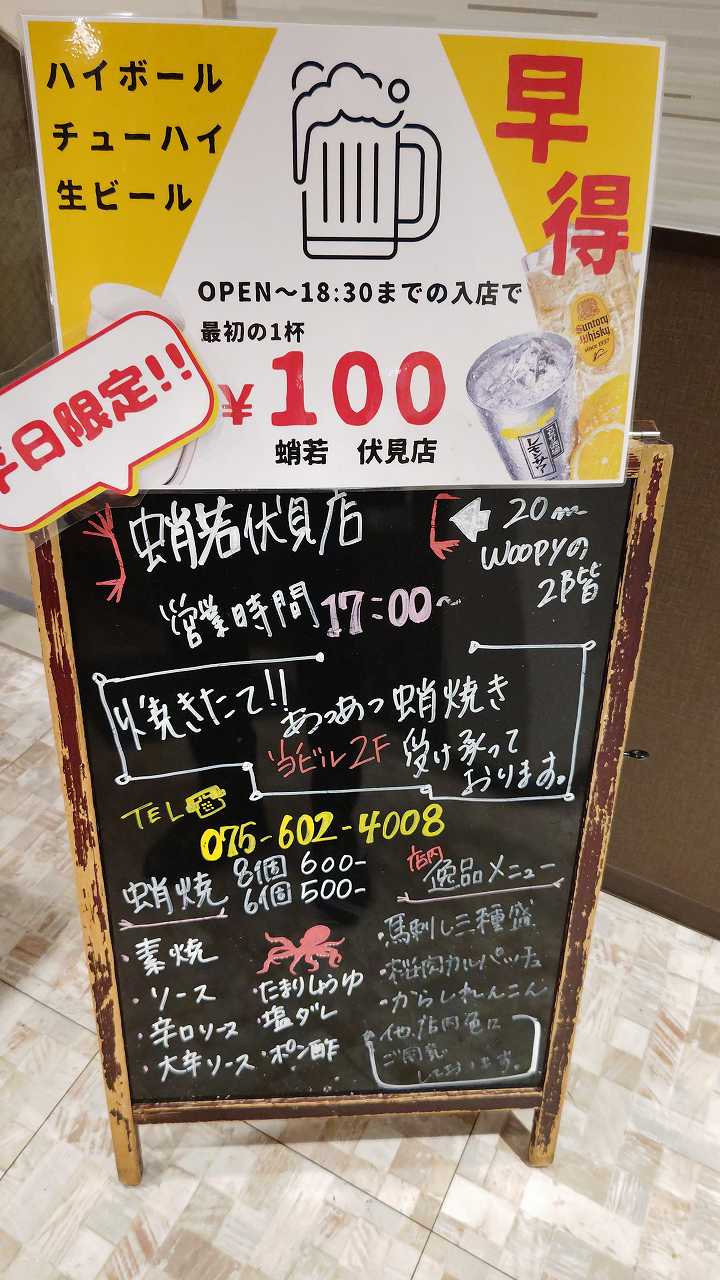 ハイボール
チューハイ
生ビール
早得
OPEN～18:30までの入店で
最初の1杯
¥100
蛸若 伏見店
平日限定!!
Suntory
Whisky
since 1937
レモンサワー
蛸若伏見店
20m
WOOPYの
2階
営業時間 17:00～
焼きたて!!
あつあつ蛸焼き
当ビル2F 受け承って
おります。
TEL
075-602-4008
蛸焼 8個 600-
6個 500-
・素焼
・ソース
・辛口ソース
・大辛ソース
・たまりしょうゆ
・塩ダレ
・ポン酢
店内
逸品メニュー
・馬刺し三種盛
・桜肉カルパッチョ
・からしれんこん
他、店内色々
ご用意
しております。